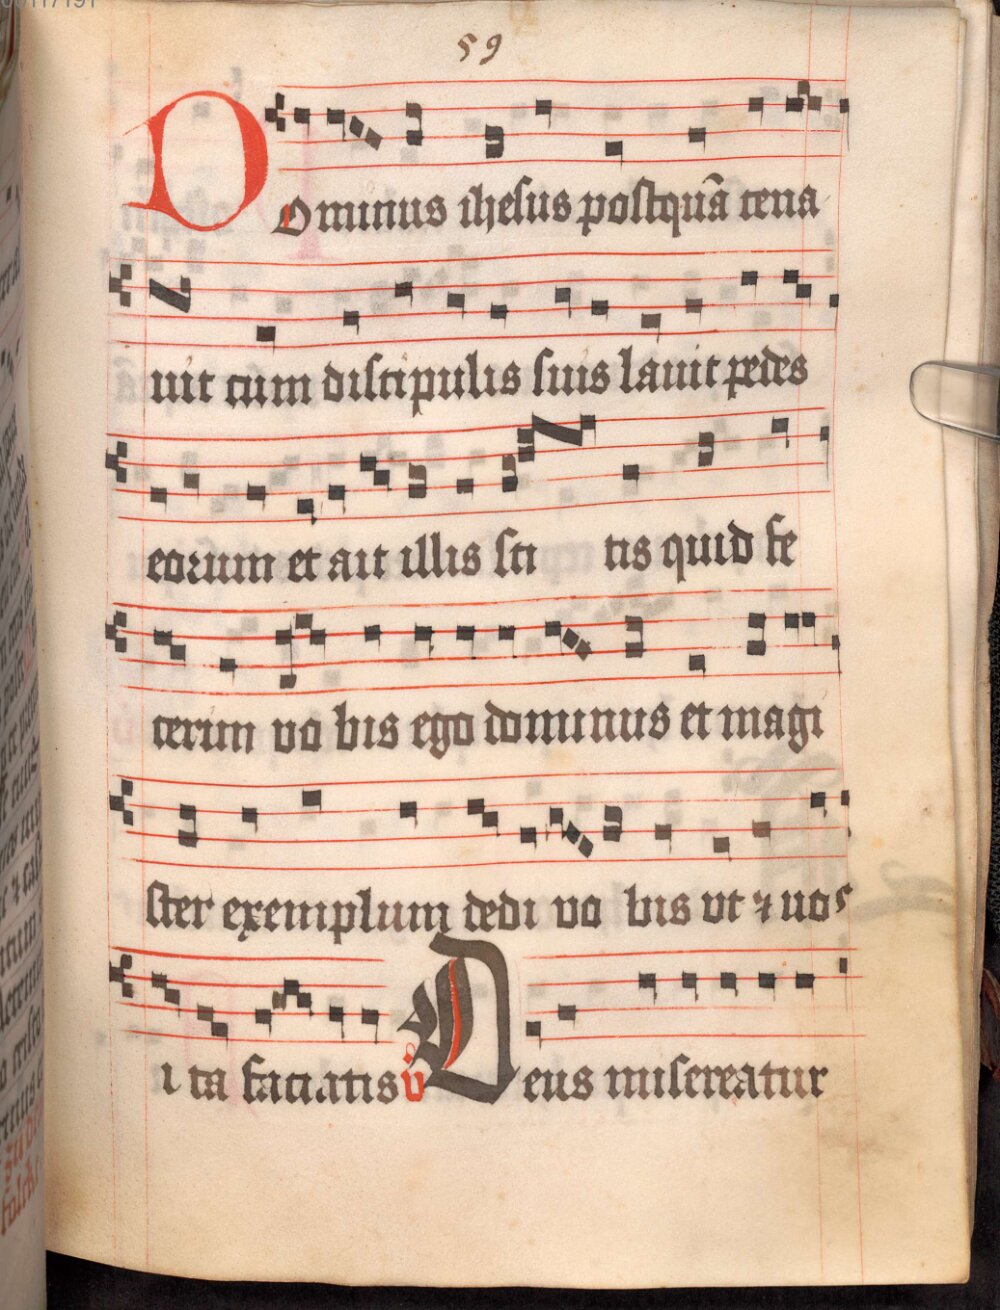 59
DOminus ihesus postquā cena
uit cum discipulis suis lauit pedes
eorum et ait illis sci tis quid fe
cerim vo bis ego dominus et magi
ster exemplum dedi vo bis vt ⁊ uos
i ta faciatis v̇ Deus misereatur